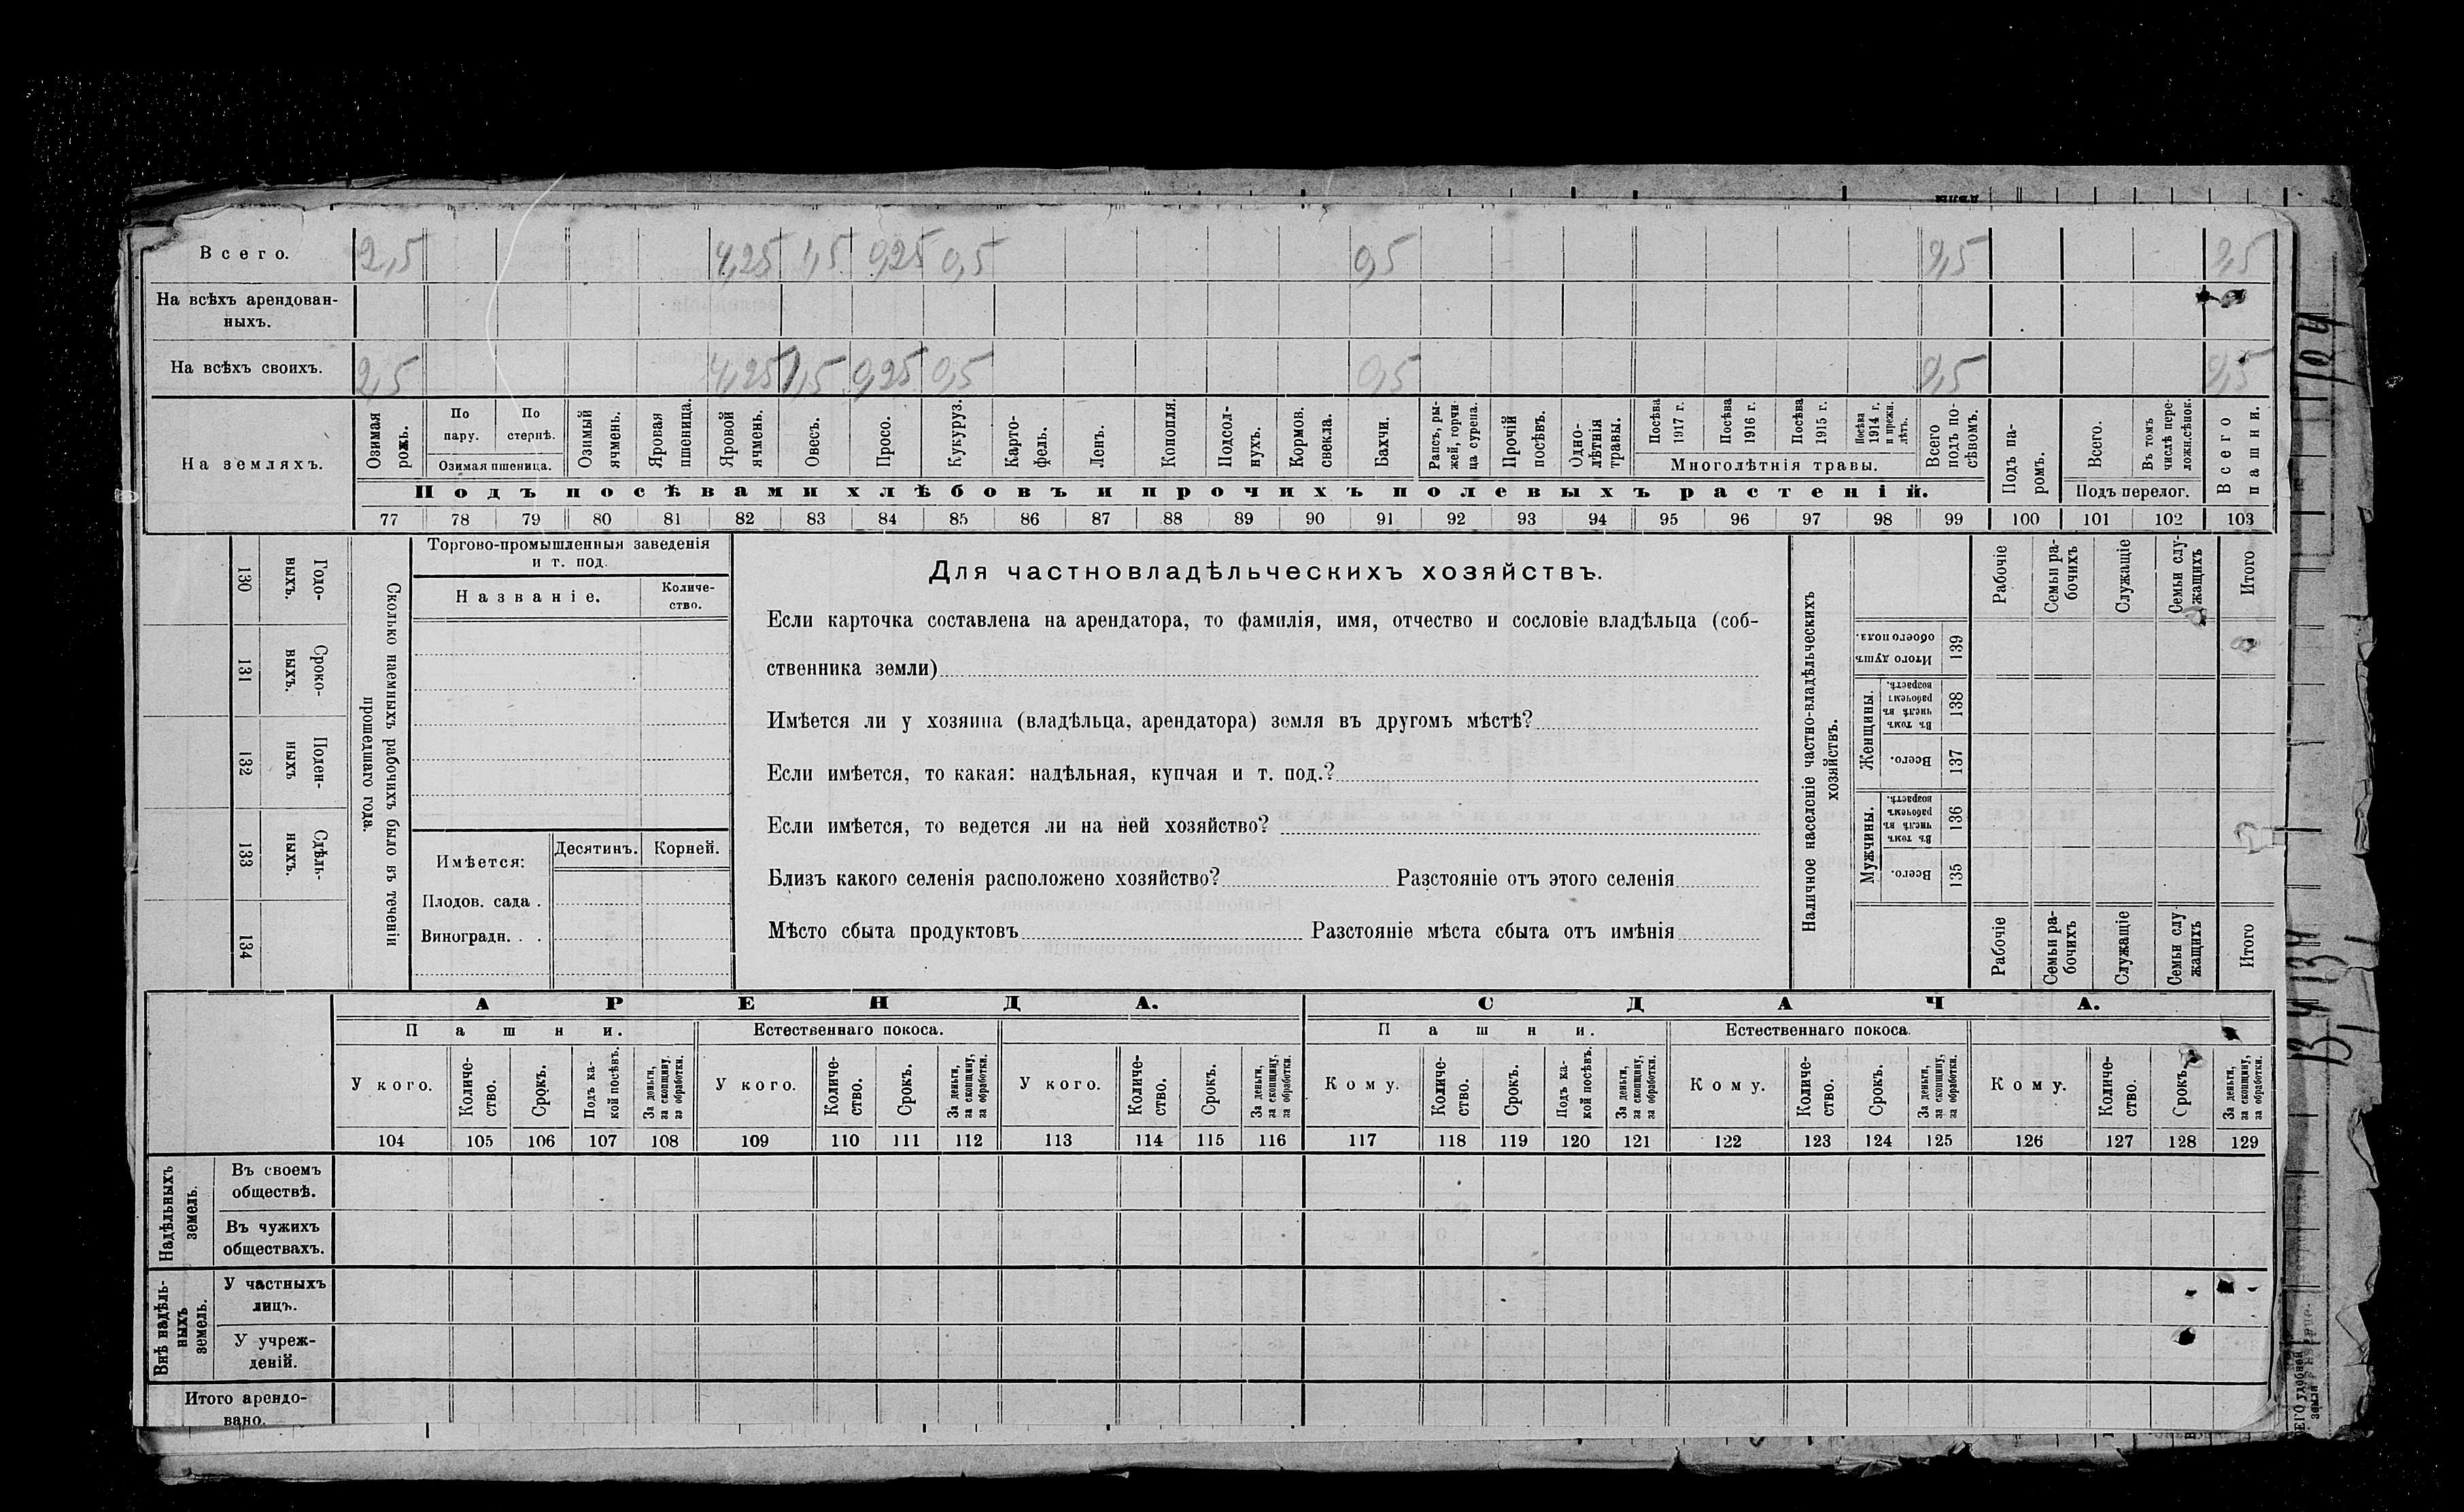 Всего. 2,5 4,25 1,5 0,25 0,5 0,5 9,5 9,5
На всѣхъ арендован-
ныхъ.
На всѣхъ своихъ. 2,5 4,25 1,5 0,25 0,5 0,5 9,5 9,5
На земляхъ.
Озимая рожь.
По пару.
По стернѣ.
Озимая пшеница.
Озимый ячмень.
Яровая пшеница.
Яровой ячмень.
Овесъ.
Просо.
Кукуруз.
Карто-
фель.
Ленъ.
Конопля.
Подсол-
нухъ.
Кормов. свекла.
Бахчи.
Рапсъ, ры-
жей, горчи
ца сурепа.
Прочій посѣвъ.
Одно-
лѣтнія травы.
Посѣва 1917 г.
Посѣва 1916 г.
Посѣва 1915 г.
Посѣва 1914 г. и прежн. лѣтъ.
Многолѣтнія травы.
Всего подъ по-
сѣвомъ.
Подъ па-
ромъ.
Всего.
Въ томъ числѣ пере-
ложн.сѣнок.
Подъ перелог.
Всего пашни.
Подъ посѣвами хлѣбовъ и прочихъ полевыхъ растеній.
77 78 79 80 81 82 83 84 85 86 87 88 89 90 91 92 93 94 95 96 97 98 99 100 101 102 103
130 Годо-
выхъ.
131 Сроко-
выхъ.
132 Поден-
ныхъ
133 Сдѣль-
ныхъ.
134
Сколько наемныхъ рабочихъ было въ теченіи
прошедшаго года.
Торгово-промышленныя заведенія
и т. под.
Названіе.
Количе-
ство.
Имѣется:
Десятинъ. Корней.
Плодов. сада .
Виноградн. . .
Для частновладѣльческихъ хозяйствъ.
Если карточка составлена на арендатора, то фамилія, имя, отчество и сословіе владѣльца (соб-
ственника земли)
Имѣется ли у хозяина (владѣльца, арендатора) земля въ другомъ мѣстѣ?
Если имѣется, то какая: надѣльная, купчая и т. под.?
Если имѣется, то ведется ли на ней хозяйство?
Близъ какого селенія расположено хозяйство? Разстояніе отъ этого селенія
Мѣсто сбыта продуктовъ Разстояніе мѣста сбыта отъ имѣнія
Наличное населеніе частно-владѣльческихъ
хозяйствъ.
Рабочіе
Семьи ра-
бочихъ
Служащіе
Семьи слу-
жащихъ
Итого
Итого душъ обоего пола. 139
Женщины.
Въ томъ числѣ въ рабочемъ возрастѣ. 138
Всего. 137
Мужчины.
Въ томъ числѣ въ рабочемъ возрастѣ. 136
Всего. 135
Рабочіе
Семьи ра-
бочихъ
Служащіе
Семьи слу
жащихъ
Итого
АРЕНДА. СДАЧА.
Пашни. Естественнаго покоса. Пашни. Естественнаго покоса.
У кого.
Количе-
ство.
Срокъ.
Подъ ка-
кой посѣвъ.
За деньги, за скопщину, за обработки.
У кого.
Количе-
ство.
Срокъ.
За деньги, за скопщину, за обработки.
У кого.
Количе-
ство.
Срокъ.
За деньги, за скопщину, за обработки.
Кому.
Количе-
ство.
Срокъ.
Подъ ка-
кой посѣвъ.
За деньги, за скопщину, за обработки.
Кому.
Количе-
ство.
Срокъ.
За деньги, за скопщину, за обработки.
Кому.
Количе-
ство.
Срокъ.
За деньги, за скопщину, за обработки.
104 105 106 107 108 109 110 111 112 113 114 115 116 117 118 119 120 121 122 123 124 125 126 127 128 129
Надѣльныхъ земель.
Въ своемъ
обществѣ.
Въ чужихъ
обществахъ.
Внѣ надѣль-
ныхъ земель.
У частныхъ
лицъ.
У учреж-
деній.
Итого арендо-
вано.